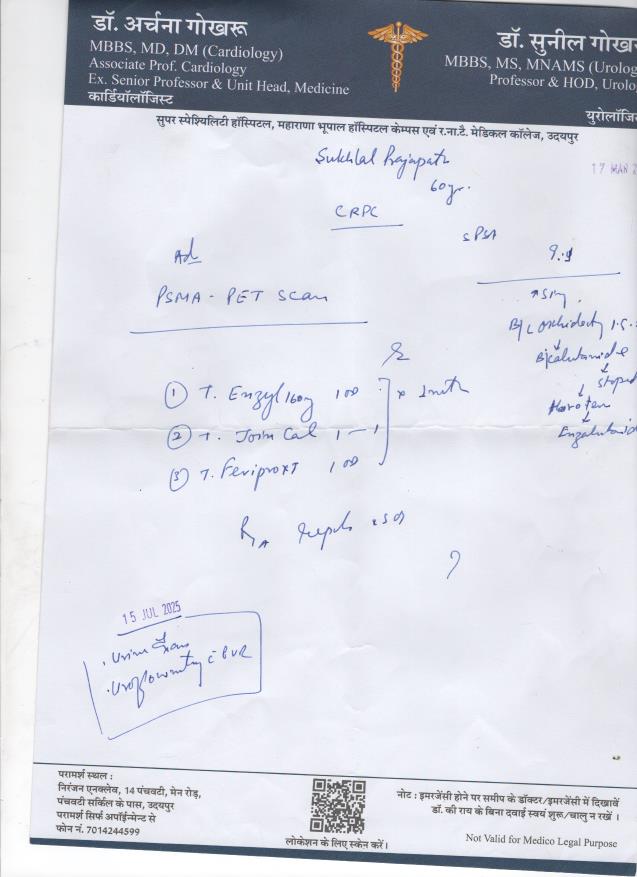 डॉ. अर्चना गोखरू
MBBS, MD, DM (Cardiology)
Associate Prof. Cardiology
Ex. Senior Professor & Unit Head, Medicine
कार्डियॉलॉजिस्ट
डॉ. सुनील गोखरू
MBBS, MS, MNAMS (Urolog
Professor & HOD, Urolo
युरोलॉजि
सुपर स्पेश्यिलिटी हॉस्पिटल, महाराणा भूपाल हॉस्पिटल केम्पस एवं र.ना.टै. मेडिकल कॉलेज, उदयपुर
Sukhlal Prajapath
60yr.
17 MAR 2
CRPC
SPSA
9.1
Ad
PSMA - PET Scan
B/L orchidectomy
Bicalutamide
stoped
Enzalutamid
① T. Enzyl 160mg 1 OD
② T. Join Cal 1 — 1
③ T. Feriprox T 1 OD
x 1 month
15 JUL 2025
. Urine Exam
. Uroflowmetry c PVR
परामर्श स्थल :
निरंजन एनक्लेव, 14 पंचवटी, मेन रोड़,
पंचवटी सर्किल के पास, उदयपुर
परामर्श सिर्फ अपॉईन्मेन्ट से
फोन नं. 7014244599
लोकेशन के लिए स्केन करें।
नोट : इमरजेंसी होने पर समीप के डॉक्टर/इमरजेंसी में दिखावें
डॉ. की राय के बिना दवाई स्वयं शुरू/चालु न रखें ।
Not Valid for Medico Legal Purpose